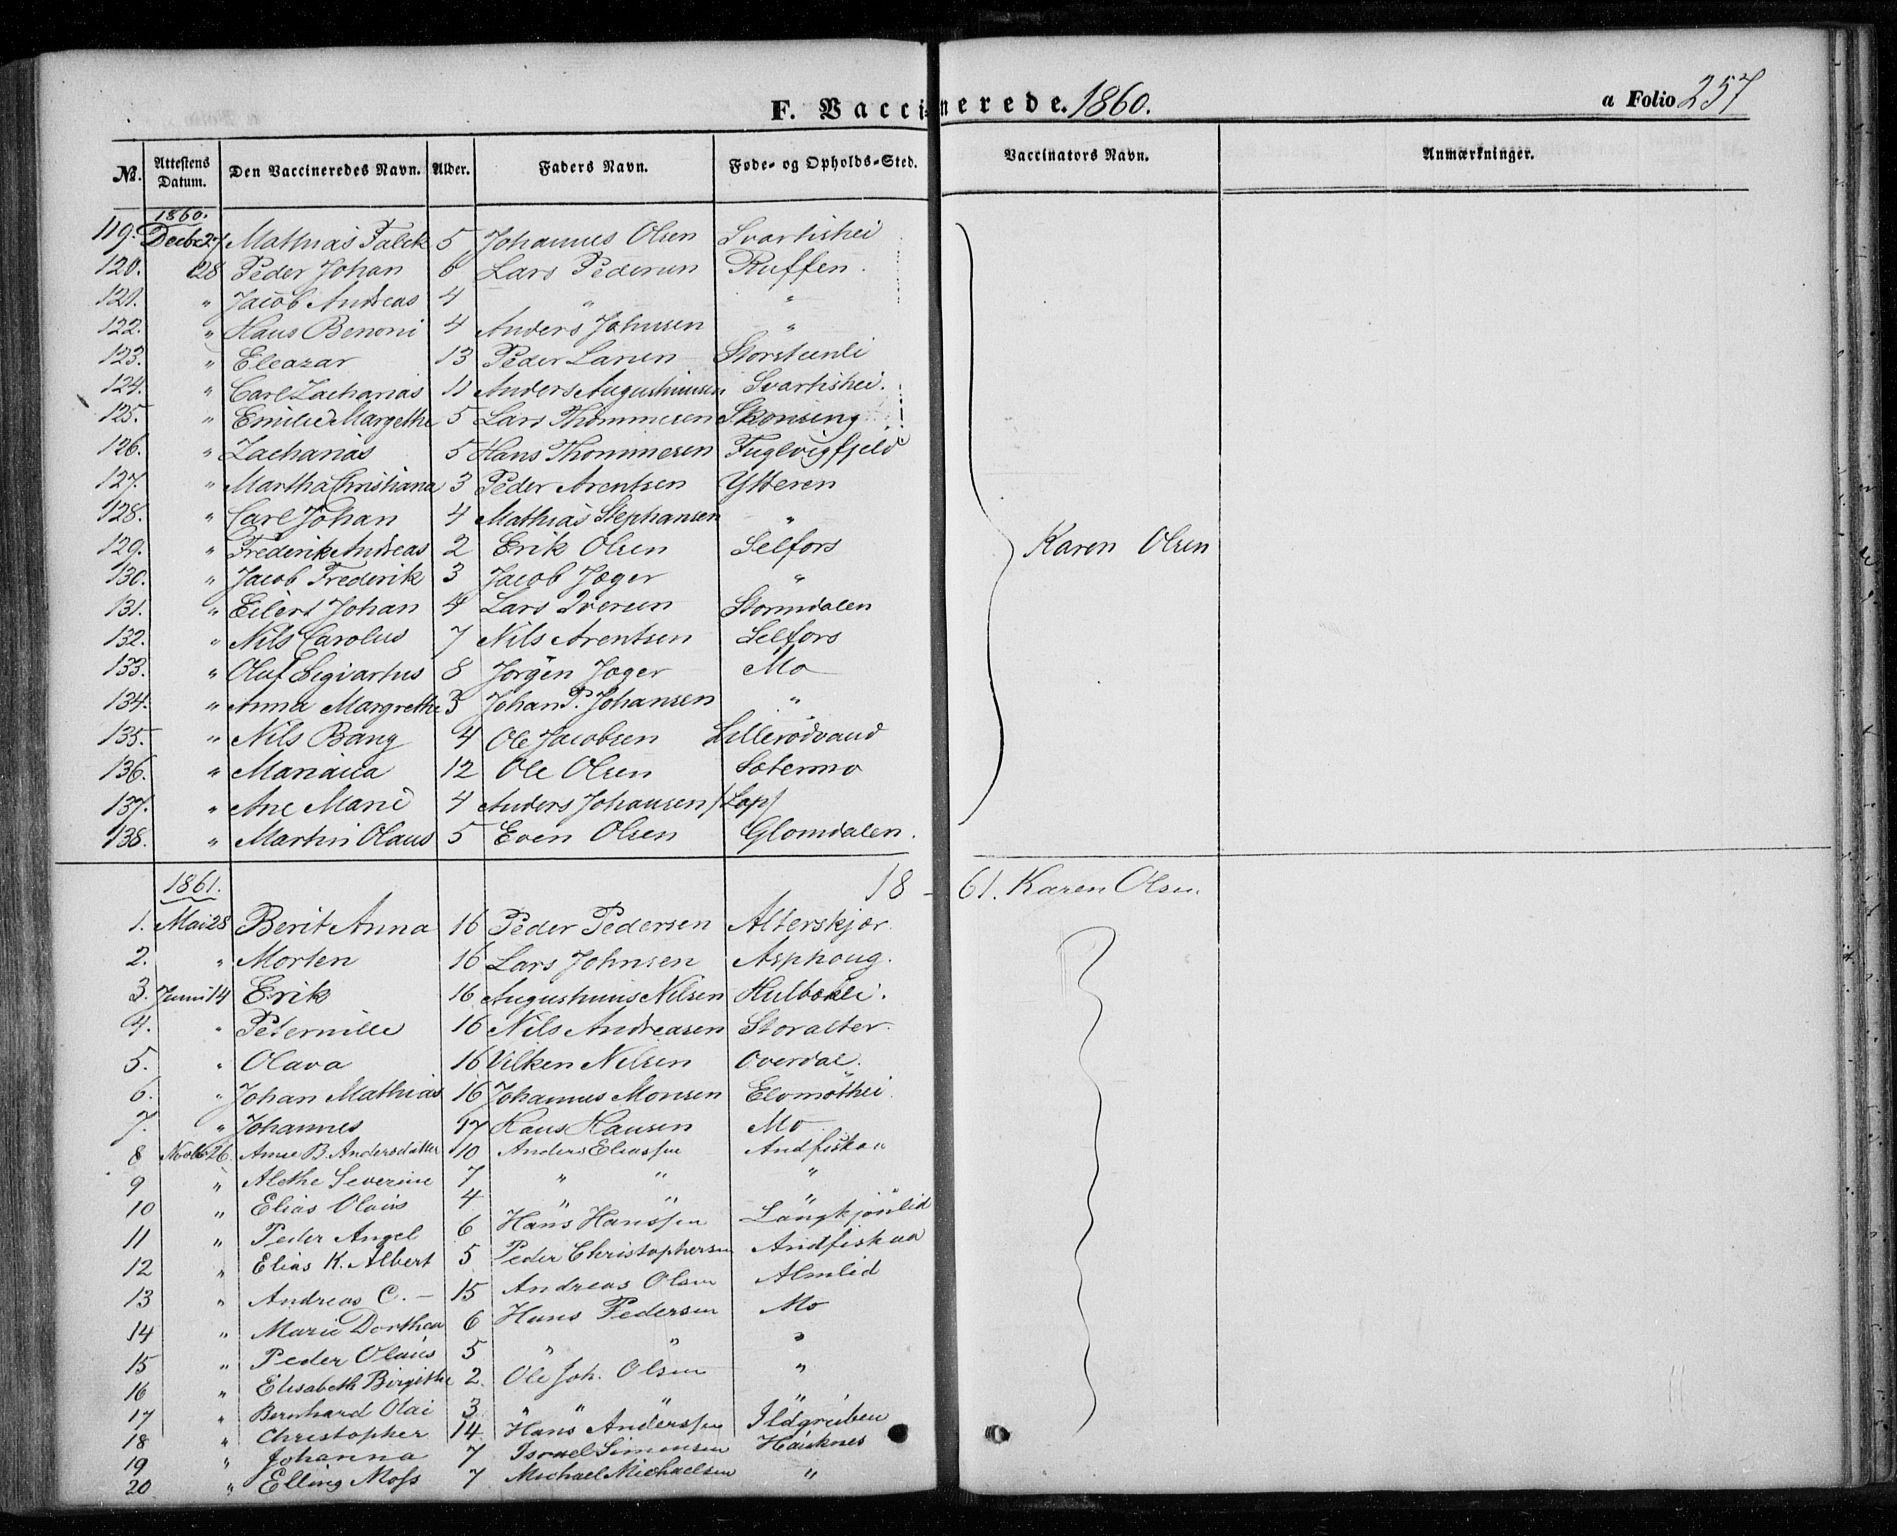 F. Vaccinerede. 1860. a Folio 257
No. Attestens Datum. Den Vaccineredes Navn. Alder. Faders Navn. Føde- og Opholds-Sted. Vaccinators Navn. Anmærkninger.
1860.
119. Decbr 27 Mathias Falck 5 Johannes Olsen Svartishei
120. 28 Peder Johan 6 Lars Pedersen Ruffen.
121. " Jacob Andreas 4 " "
122. " Hans Benoni 4 Anders Johnsen "
123. " Eleazar 13 Peder Larsen Storsteenli
124. " Carl Zacharias 11 Anders Augustinusen Svartishei.
125. " Emilie Margethe 5 Lars Thommesen Skonseng
126. " Zacharias 5 Hans Thommesen Fuglvigfjeld
127. " Martha Christiana 3 Peder Arentsen Ytteren
128. " Carl Johan 4 Mathias Stephansen "
129. " Frederik Andreas 2 Erik Olsen Selfors Karen Olsen
130. " Jacob Frederik 3 Jacob Jæger "
131. " Eilert Johan 4 Lars Iversen Stormdalen
132. " Nils Carolus 7 Nils Arentsen Selfors
133. " Oluf Sigvartus 8 Jørgen Jæger Mo
134. " Anna Margrethe 3 Johan P. Johansen "
135. " Nils Bang 4 Ole Jacobsen Lillerødvand
136. " Mariana 12 Ole Olsen Sætermo
137. " Ane Marie 4 Anders Johansen /Lap/
138. " Martin Olaus 5 Even Olsen Glomdalen.
1861. 18 - 61. Karen Olsen
1. Mai 28 Berit Anna 16 Peder Pedersen Alterskjær
2. " Morten 16 Lars Johnsen Asphoug.
3. Juni 14 Erik 16 Augustinus Nilsen Hulbækli.
4. " Peternille 16 Nils Andreasen Storalter
5. " Olava 16 Vilken Nilsen Overdal.
6. " Johan Mathias 16 Johannes Monsen Elvmøthei
7. " Johannes 17 Hans Hansen Mo
8 Novbr 26. Anne B. Andersdatter 10 Anders Eliassen Andfiskaa
9 " Alethe Severine 7 " " "
10 " Elias Olaus 4 " " "
11 " Peder Angel 6 Hans Hanssen Langkjønlid
12 " Elias K. Albert 5 Peder Christophersen Andfiskaa
13 " Andreas C. - 15 Andreas Olsen Almlid
14 " Marie Dorthea 6 Hans Pedersen Mo
15 " Peder Olaus 5 " " "
16 " Elisabeth Birgithe 2. Ole Joh. Olsen "
17 " Bernhard Olai 3 " " "
18 " Christopher 14. Hans Anderssen Ildgruben
19 " Johanna 7 Israel Simonsen Hauknes
20 " Elling Moss 7 Michael Michaelsen "